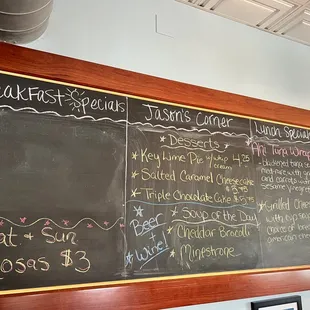 Breakfast Specials
Sat + Sun
mosas $3
Jason's Corner
Desserts
Key Lime Pie w/ whip cream 4.75
Salted Caramel Cheesecake
Triple Chocolate Cake
Beer +
Wine!
Soup of the Day
Cheddar Broccoli
Minestrone
Lunch Specials
Ahi Tuna Wrap
- blackened tuna
and carrots
sesame
Grilled Cheese
with
choice of
american